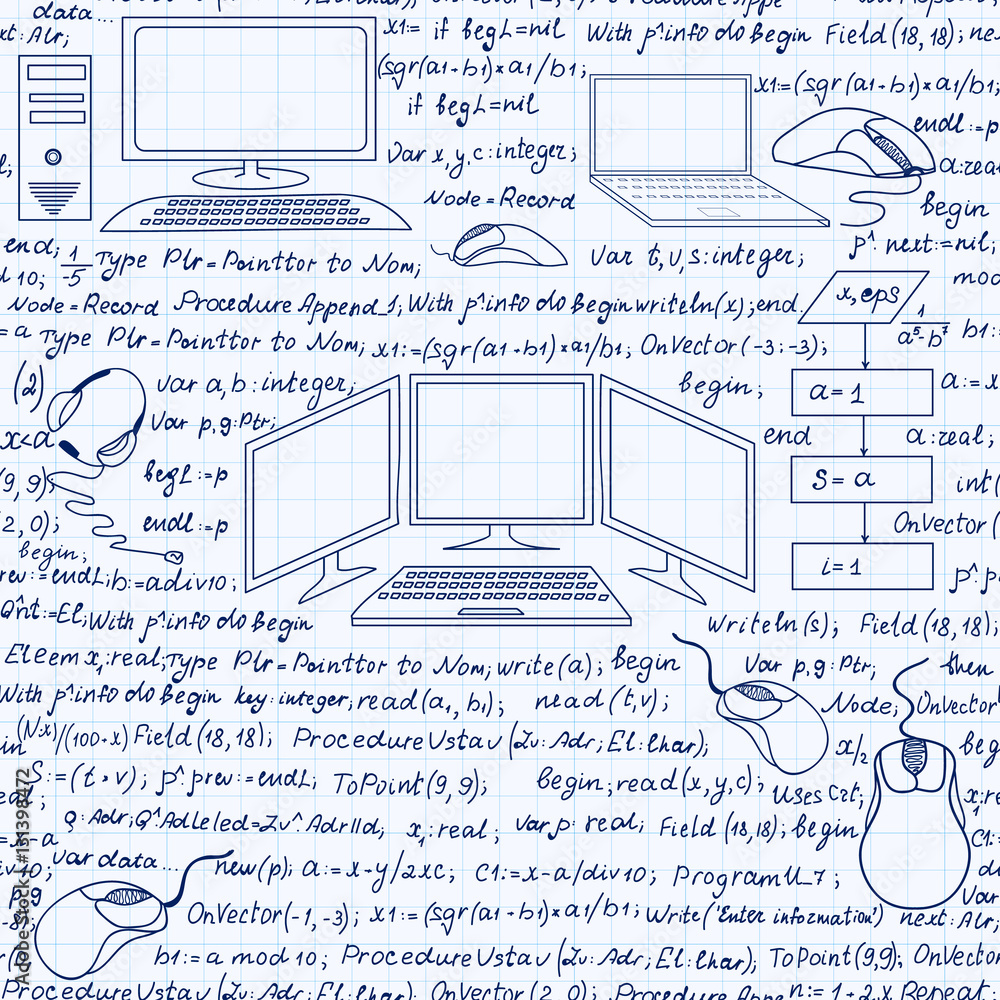 data...
x1:= if begL=nil With p^.info do Begin Field (18, 18);
xt: Alr;
(sgr(a1-b1)*a1/b1;
x1:=(sgr(a1-b1)*a1/b1;
if begL=nil
endl:=p
Var x,y,c:integer;
a:real
Node=Record
begin
end;
p^. next:=nil;
1/-5 Type Plr=Pointtor to Nom;
Var t,v,s:integer;
Node=Record Procedure Append_1; With p^.info do Begin writeln(x);end.
x,eps
1/a⁵-b⁷ b1:
= a Type Plr=Pointtor to Nom; x1:=(sgr(a1-b1)*a1/b1; OnVector(-3;-3);
(2)
var a,b:integer;
begin;
a=1
a:=x
Var p,g:Ptr;
x<a
end
a:real;
begL:=p
S=a
(9,9);
int(
endl:=p
2,0);
OnVector(
begin;
i=1
rev:=endL; b:=adiv10;
p^.p
Qnt:=El; With p^.info do Begin
writeln(s); Field(18,18);
Eleem x1:real; Type Plr=Pointtor to Nom; write(a); begin
Var p,g:Ptr;
then
With p^.info do Begin key:integer; read(a1, b1); nead(t,v);
Node; OnVector
(N·x)/(100·x) Field(18,18); Procedure Ustav(Zv:Adr;El:Char);
x/2
beg
S:=(t·v); p^.prev:=endL; ToPoint(9,9); begin; read(x,y,c);
Uses Crt;
Q:Adr;Q^Adleled=Zv^AdrIId; x1:real; var p: real; Field(18,18); begin
var data...
new(p); a:=x-y/2xc; C1:=x-a/div10; ProgramU_7;
Var
OnVector(-1,-3); x1:=(sgr(a1-b1)*a1/b1; Write('Enter information') next:Alr;
b1:=a mod 10; Procedure Ustav(Zv:Adr;El:Char); ToPoint(9,9); OnVector
Procedure Ustav(Zv:Adr;El:Char); OnVector(2,0); Procedure Appe n:=1-2.x Repeat:
Adobe Stock | #131398472